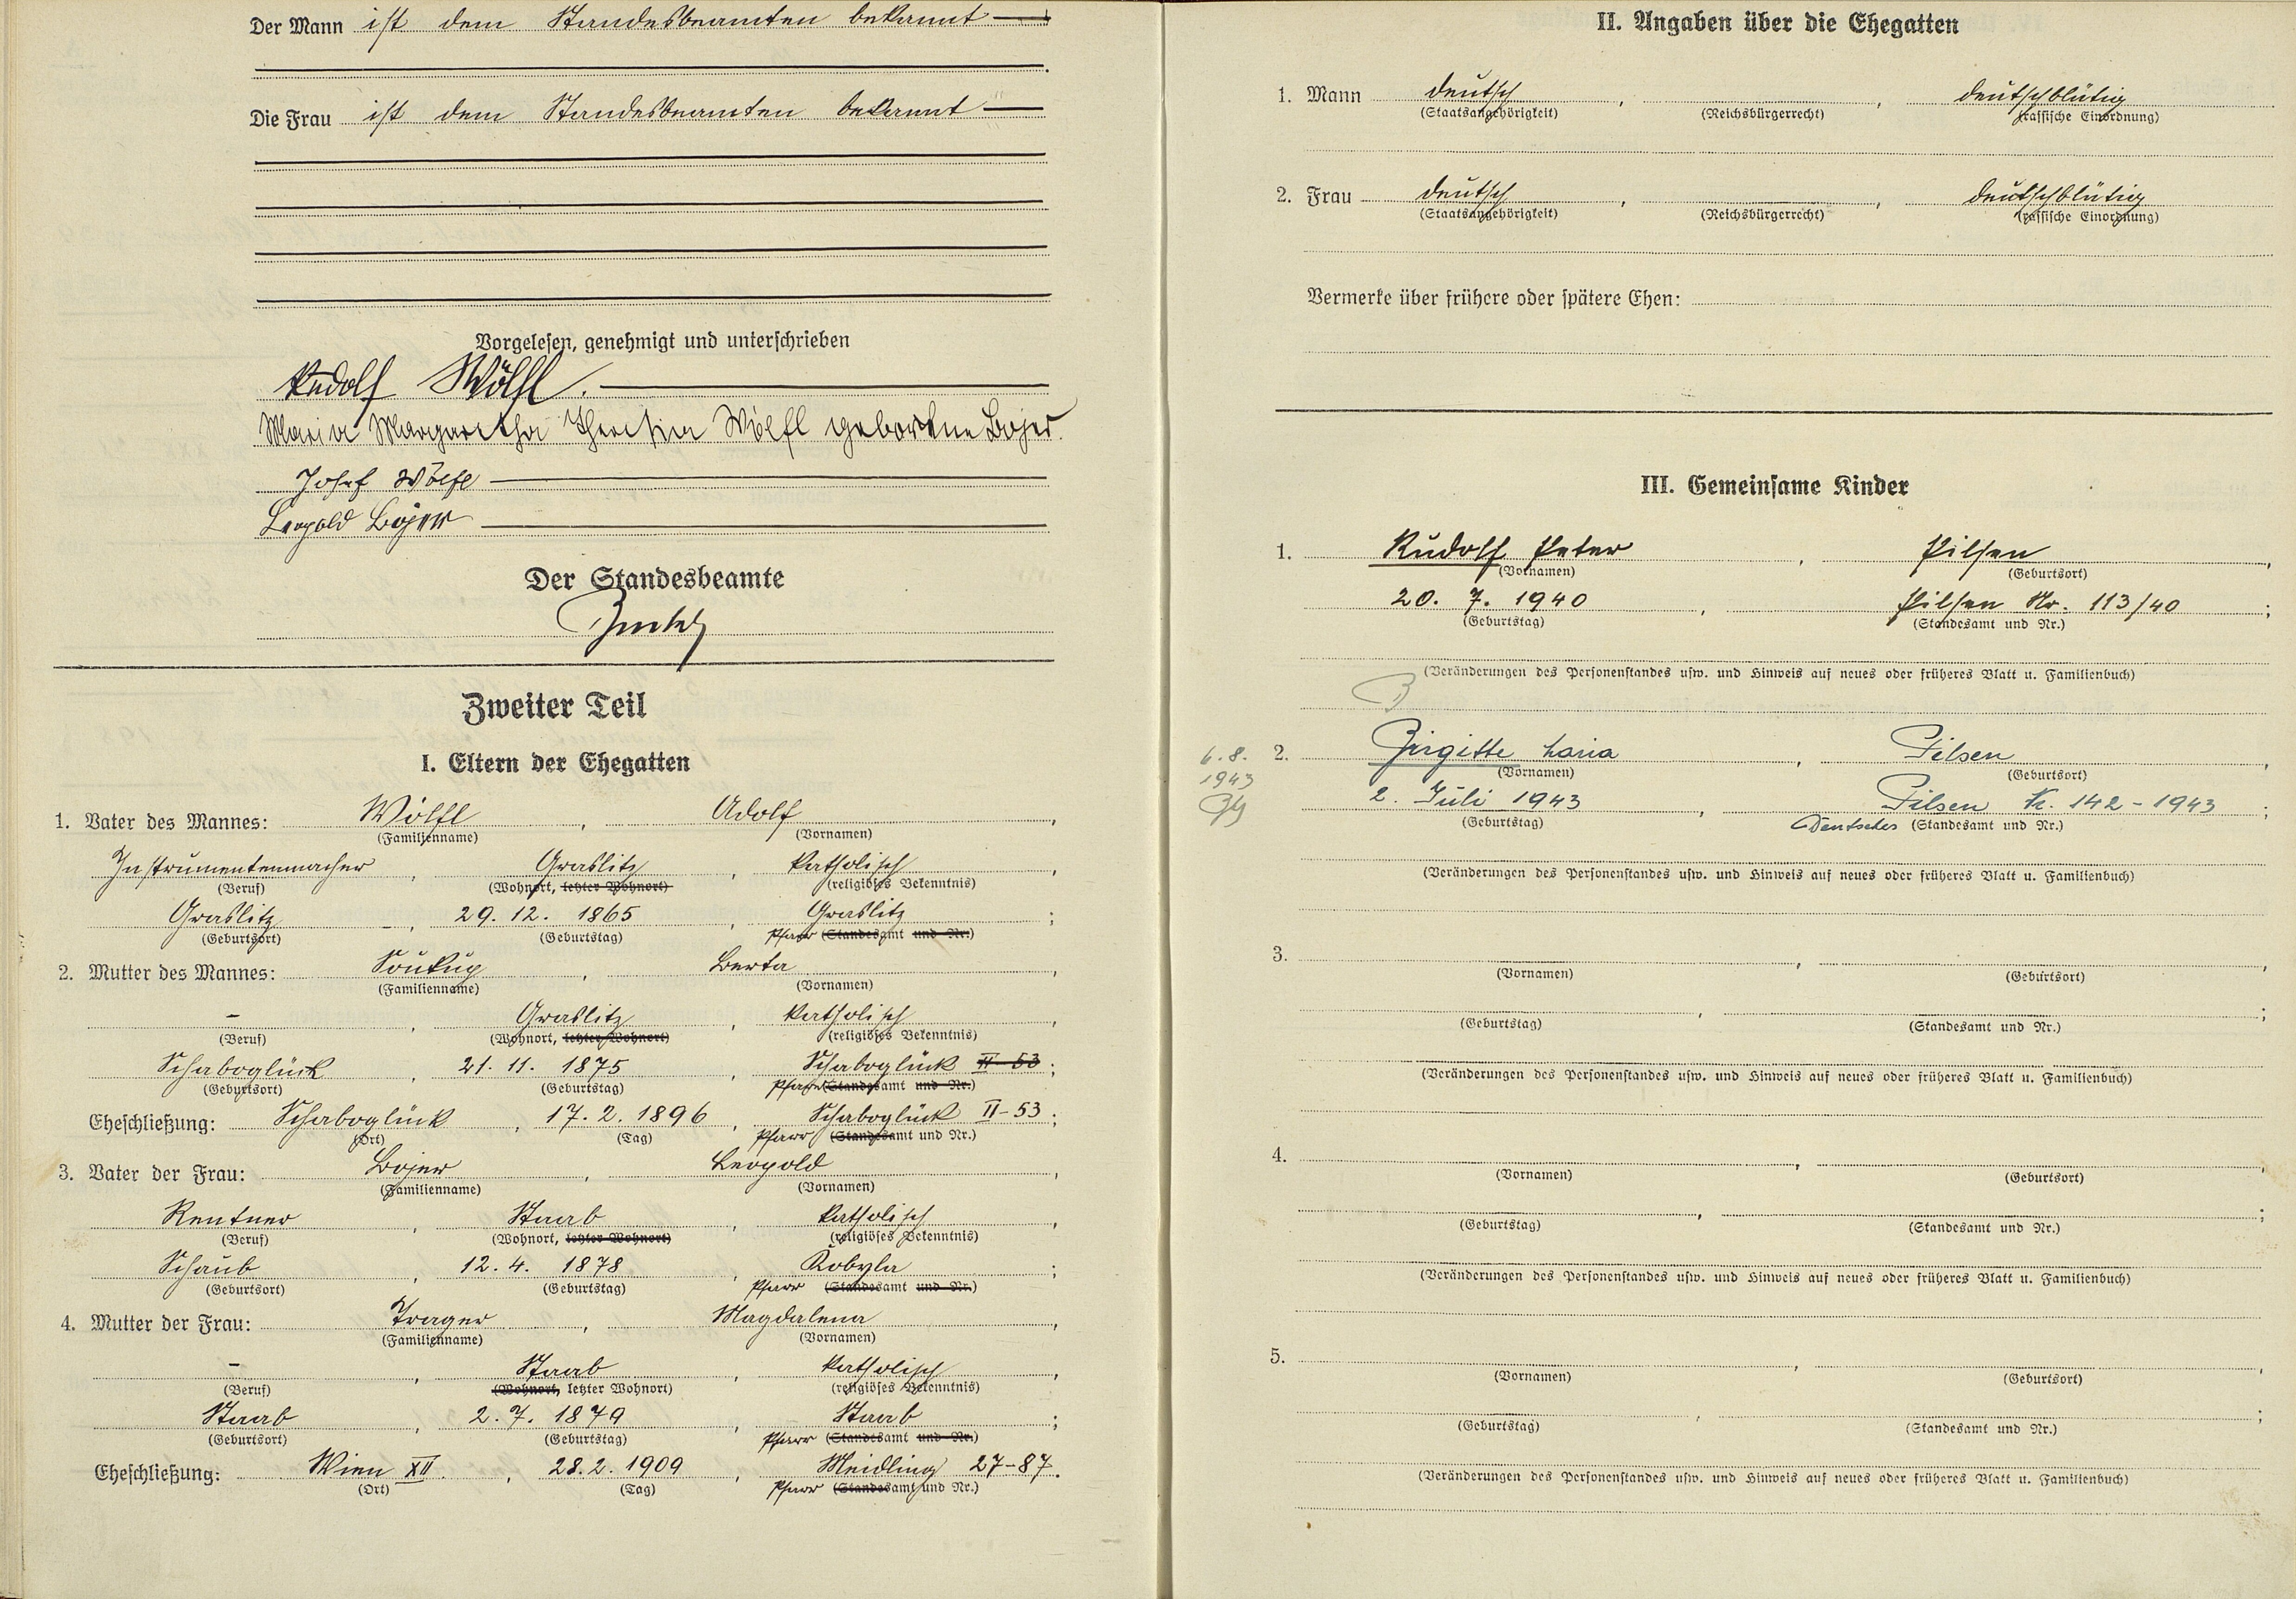 Der Mann ist dem Standesbeamten bekannt
Die Frau ist dem Standesbeamten bekannt
Vorgelesen, genehmigt und unterschrieben
Rudolf Wölfl.
Maria Margaretha Theresia Wölfl geborene Bojer.
Josef Wölfl
Leopold Bojer
Der Standesbeamte
Zweiter Teil
I. Eltern der Ehegatten
1. Vater des Mannes: Wölfl, Adolf,
(Familienname) (Vornamen)
Instrumentenmacher, Graslitz, katholisch,
(Beruf) (Wohnort, letzter Wohnort) (religiöses Bekenntnis)
Graslitz, 29. 12. 1865, Graslitz;
(Geburtsort) (Geburtstag) Pfarr (Standesamt und Nr.)
2. Mutter des Mannes: Soukup, Berta,
(Familienname) (Vornamen)
–, Graslitz, katholisch,
(Beruf) (Wohnort, letzter Wohnort) (religiöses Bekenntnis)
Schaboglück, 21. 11. 1875, Schaboglück II-53;
(Geburtsort) (Geburtstag) Pfarr (Standesamt und Nr.)
Eheschließung: Schaboglück, 17. 2. 1896, Schaboglück II-53;
(Ort) (Tag) Pfarr (Standesamt und Nr.)
3. Vater der Frau: Bojer, Leopold,
(Familienname) (Vornamen)
Rentner, Staab, katholisch,
(Beruf) (Wohnort, letzter Wohnort) (religiöses Bekenntnis)
Schaub, 12. 4. 1878, Kobyla;
(Geburtsort) (Geburtstag) Pfarr (Standesamt und Nr.)
4. Mutter der Frau: Trager, Magdalena,
(Familienname) (Vornamen)
–, Staab, katholisch,
(Beruf) (Wohnort, letzter Wohnort) (religiöses Bekenntnis)
Staab, 2. 7. 1879, Staab;
(Geburtsort) (Geburtstag) Pfarr (Standesamt und Nr.)
Eheschließung: Wien XII., 28. 2. 1909, Meidling 27-87.
(Ort) (Tag) Pfarr (Standesamt und Nr.)
II. Angaben über die Ehegatten
1. Mann deutsch, , deutschblütig
(Staatsangehörigkeit) (Reichsbürgerrecht) (rassische Einordnung)
2. Frau deutsch, , deutschblütig
(Staatsangehörigkeit) (Reichsbürgerrecht) (rassische Einordnung)
Vermerke über frühere oder spätere Ehen:
III. Gemeinsame Kinder
1. Rudolf Peter, Pilsen,
(Vornamen) (Geburtsort)
20. 7. 1940, Pilsen Nr. 113/40;
(Geburtstag) (Standesamt und Nr.)
(Veränderungen des Personenstandes usw. und Hinweis auf neues oder früheres Blatt u. Familienbuch)
6. 8. 1943
2. Birgitte Maria, Pilsen,
(Vornamen) (Geburtsort)
2. Juli 1943, Pilsen Nr. 142-1943;
(Geburtstag) Deutsches (Standesamt und Nr.)
(Veränderungen des Personenstandes usw. und Hinweis auf neues oder früheres Blatt u. Familienbuch)
3. , ,
(Vornamen) (Geburtsort)
, ;
(Geburtstag) (Standesamt und Nr.)
(Veränderungen des Personenstandes usw. und Hinweis auf neues oder früheres Blatt u. Familienbuch)
4. , ,
(Vornamen) (Geburtsort)
, ;
(Geburtstag) (Standesamt und Nr.)
(Veränderungen des Personenstandes usw. und Hinweis auf neues oder früheres Blatt u. Familienbuch)
5. , ,
(Vornamen) (Geburtsort)
, ;
(Geburtstag) (Standesamt und Nr.)
(Veränderungen des Personenstandes usw. und Hinweis auf neues oder früheres Blatt u. Familienbuch)